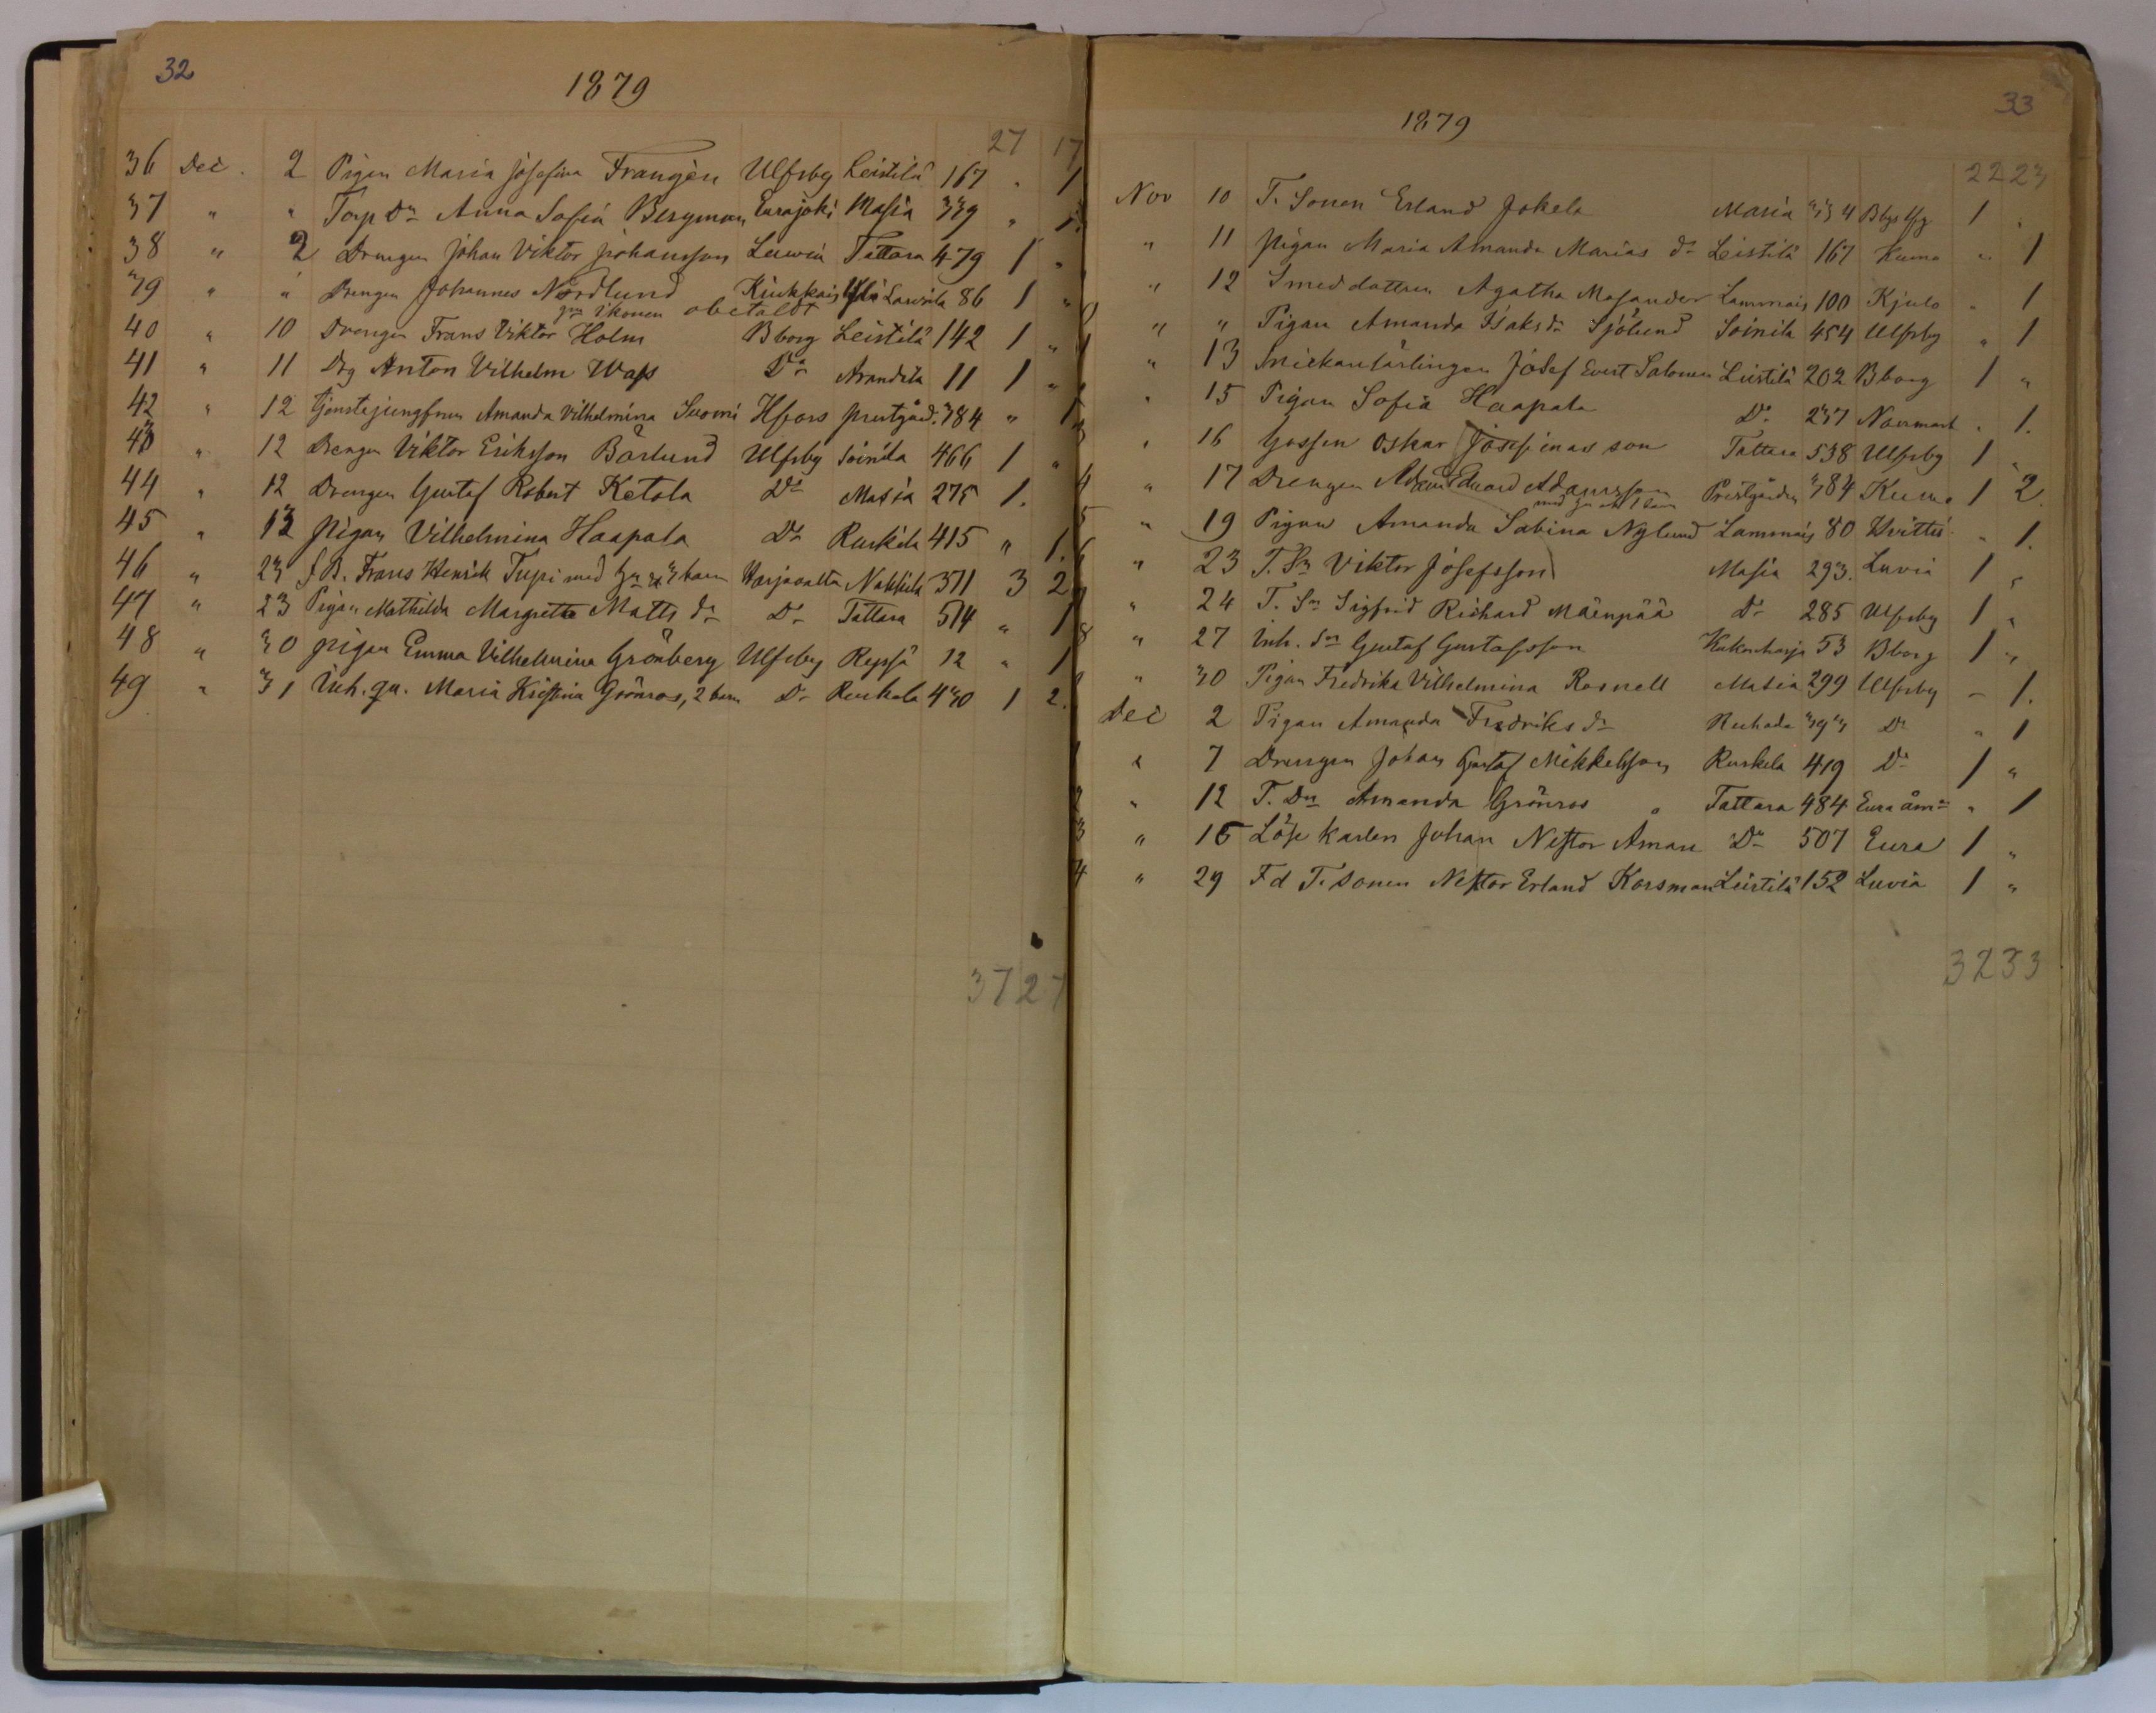 32
1879
27 17
36 Dec. 2 Pigan Maria Josefina Frangèn Ulfsby Leistilä 167 " 1
37 " " Torp Dr Anna Sofia Bergman Eurajoki Masia 339 " 1
38 " 2 Drengen Johan Viktor Johansson Luvia Tattara 479 1 "
39 " " Drengen Johannes Nordlund Kiukkais Lammala 86 1 "
obetaldt
40 " 10 Drengen Frans Viktor Holm Bborg Leistilä 142 1 "
41 " 11 Drg Anton Vilhelm Wass Do Arandila 11 1 "
42 " 12 tjenstejungfrun Amanda Vilhelmina Suomi Hfors prestgård. 384 " 1
43 " 12 Drengen Viktor Eriksson Bärlund Ulfsby Soinila 466 1 "
44 " 12 Drengen Gustaf Robert Ketola Do Masia 275 1.
45 " 13 Pigan Vilhelmina Haapala Do Ruskila 415 " 1.
46 " 23 J.B. Frans Henrik Tupi med hu o 3 barn Harjavalta Nakkila 311 3 2
47 " 23 Pigan Mathilda Margretta Matts dr Do Tattara 514 " 1
48 " 30 pigan Emma Vilhelmina Grönberg Ulfsby Reposi 12 " 1
49 " 31 Inh. qu. Maria Kristina Grönros, 2 barn Do Ruskala 430 1 2.
37 27
33
1879
22 23
Nov 10 T. Sonen Erland Jokela Masia 334 Bbgs lfg 1 "
" 11 pigan Maria Amanda Marias dr Leistilä 167 Kumo " 1
" 12 Smeddottren Agatha Masander Lammais 100 Kjulo " 1
" " Pigan Amanda Isaks dr Sjölund Soinila 454 Ulfsby " 1
" 13 Snickarlärlingen Josef Evert Salonen Leistilä 202 Bborg 1 "
" 15 Pigan Sofia Haapala Do 237 Norrmark " 1.
" 16 Gossen Oskar Josefinas son Tattara 538 Ulfsby 1 "
" 17 Drengen Adam Eduard Adamsson Prestgården 384 Kumo 1 2
med hu och 1 barn
" 19 Pigan Amanda Sabina Nylund Lammais 80 Hvittis " 1.
" 23 T. Sn Viktor Josefsson Masia 293. Luvia 1 "
" 24 T. Sn Sigfrid Richard Mäenpää Do 285 Ulfsby 1 "
" 27 Inh. Sn Gustaf Gustafsson Kukonharja 53 Bborg 1 "
" 30 Pigan Fredrika Vilhelmina Rosnell Masia 299 Ulfsby " 1.
Dec 2 Pigan Amanda Fredriks dr Ruhada 393 Do " 1
" 7 Drengen Johan Gustaf Mikkelsson Ruskela 419 Do 1 "
" 12 T. Dr Amanda Grönros Tattara 484 Eura åm " 1
" 15 Löse karlen Johan Nestor Åman Do 507 Eura 1 "
" 29 Fd T. Sonen Nestor Erland Korsman Leistilä 152 Luvia 1 "
32 33